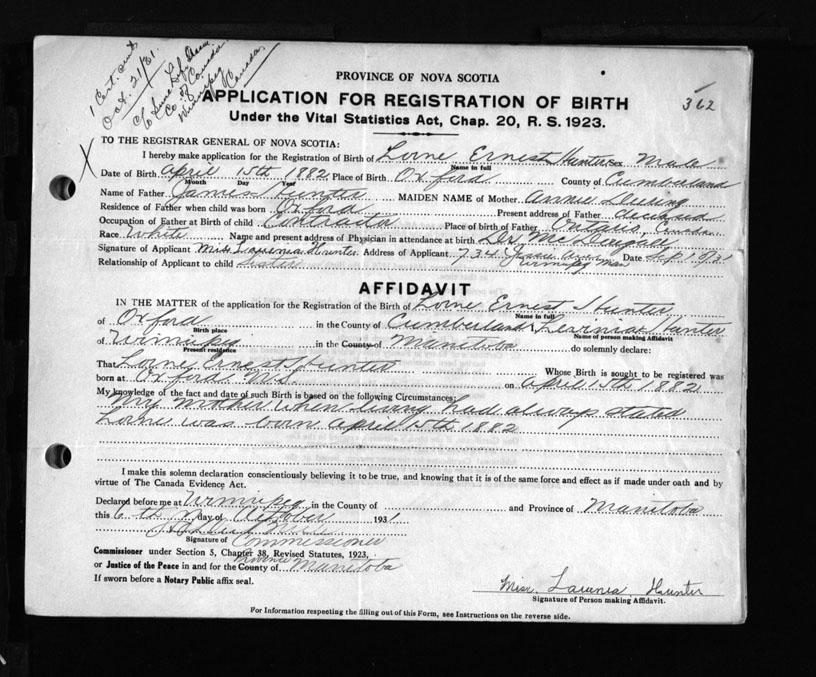 1 Cert. sent
Oct. 21/31.
c/o Sun Life Assce
Co of Canada
Winnipeg
Canada.
PROVINCE OF NOVA SCOTIA
362
APPLICATION FOR REGISTRATION OF BIRTH
Under the Vital Statistics Act, Chap. 20, R. S. 1923.
X
TO THE REGISTRAR GENERAL OF NOVA SCOTIA:
I hereby make application for the Registration of Birth of Lorne Ernest Hunter Sex Male
Name in full
Date of Birth April 15th 1882 Place of Birth Oxford County of Cumberland
Month Day Year
Name of Father James Hunter MAIDEN NAME of Mother Annie
Residence of Father when child was born Oxford Present address of Father deceased
Occupation of Father at Birth of child Contractor Place of birth of Father Ontario, Canada
Race White Name and present address of Physician in attendance at birth Dr
Signature of Applicant Miss Hunter Address of Applicant 734 Winnipeg Man Date Sep 1 31
Relationship of Applicant to child Sister
AFFIDAVIT
IN THE MATTER of the application for the Registration of the Birth of Lorne Ernest Hunter
Name in full
of Oxford in the County of Cumberland Hunter
Birth place Name of person making Affidavit
of Winnipeg in the County of Manitoba do solemnly declare:
Present residence
That Lorne Ernest Hunter Whose Birth is sought to be registered was
born at Oxford N.S. on April 15th 1882
My knowledge of the fact and date of such Birth is based on the following Circumstances:
My mother when living had always stated
Lorne was born April 15th 1882
I make this solemn declaration conscientiously believing it to be true, and knowing that it is of the same force and effect as if made under oath and by
virtue of The Canada Evidence Act.
Declared before me at Winnipeg in the County of and Province of Manitoba
this 6th day of October 1931
Signature of Commissioner
Commissioner under Section 5, Chapter 38, Revised Statutes, 1923,
Province
or Justice of the Peace in and for the County of Manitoba
If sworn before a Notary Public affix seal.
Miss Hunter
Signature of Person making Affidavit.
For Information respecting the filling out of this Form, see Instructions on the reverse side.